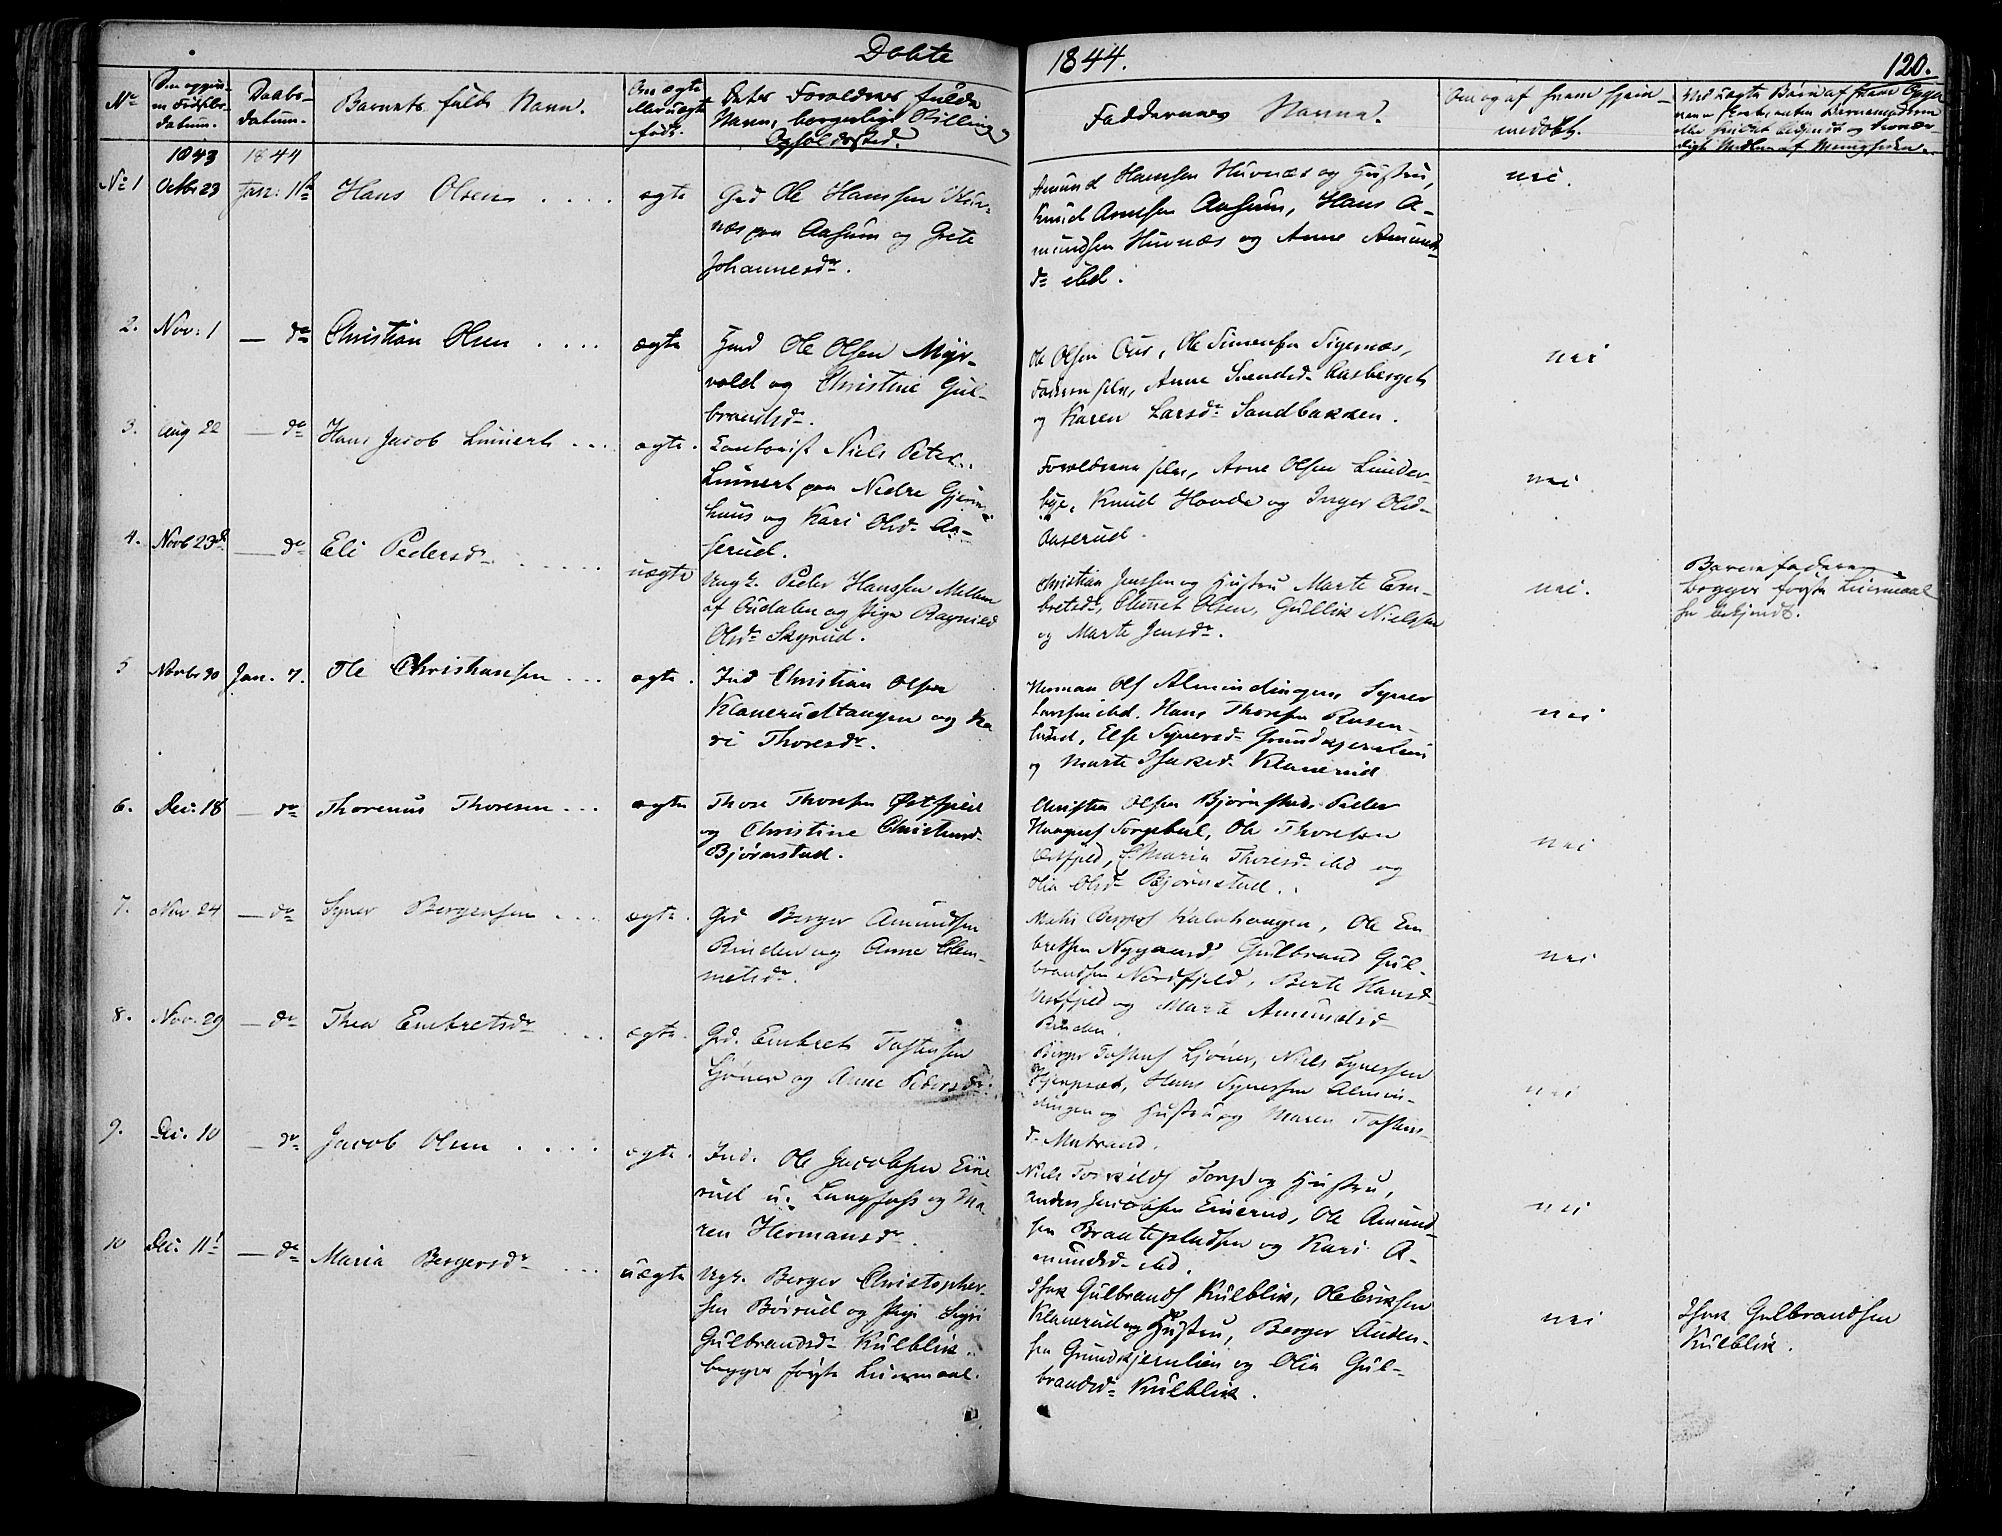 Døbte 1844. 120.
No
Daabs-
datum.
Barnets fulde Navn.
Om ægte
eller uægte
født.
Forældres fulde
Navn, borgerlige Stilling
Opholdssted.
Faddernes Navne.
Om og af hvem hjem-
medøbt.
1843 1844
No 1 Octbr 23 Jan: 1ste Hans Olsen . . . . ægte
Grd Ole Hanssen Huv-
næs paa Aasum og Grete
Johannesdr.
Amund Hanssen Huvnæs og Hustru,
Knud Arnesen Aasum, Hans A-
mundsen Huvnæs og Anne Amunds-
dr ibd.
nei.
2. Nov: 1 — do Christian Olsen . . . . ægte
Huusmd Ole Olsen Myr-
vold og Christine Gul-
brandsdr.
Ole Olsen Aus, Ole Simensen Sigernæs,
Faderen selv, Anne Svendsdr Aasberget
og Karen Larsdr Sandbakken.
nei
3. Aug 22 — do Hans Jacob Linnert . . . ægte.
Contorist Niels Peter
Linnert paa Nedre
huus og Kari Olsdr Aa-
serud.
Forældrene selv, Arne Olsen Lunder-
bye, Knud Hovde og Inger Olsdr
Aaserud.
nei
4. Novb 23de — do Eli Pedersdr . . . . . uægte
Ungk. Peder Hanssen Mellem
af Audalen og Pige Ragnild
Olsdr Skyrud.
Christian Jenssen og Hustru Marte Em-
bretsdr, Clemet Olsen, Gullik Nielssen
og Marte Jensdr.
nei.
Barnefaderen
begges første Leiermaal
5 Novbr 30 Jan. 7. Ole Christiansen . . . ægte.
Ind Christian Olsen
Klanerudtangen og Ka-
ri Thoresdr.
Herman Ols Almindingen, Syver
Larssen ibd. Hans Thoresen Rosen-
lund, Else Syversdr Grundkjernlien
og Marte Isaksdr Klanerud
nei
6. Dec: 18 — do Thorenus Thoresen . . . ægte
Thore Thoresen Østfjeld
og Christine Christiansdr
Bjørnstad.
Christen Olsen Bjørnstad, Peder
Haagens Sorgebøl, Ole Thoresen
Østfjeld, Maria Thoresdr ibd og
Olia Olsdr Bjørnstad.
nei
7. Nov 24 — do Syver Bergersen . . . . ægte.
Grd Berger Amundsen
Rinden og Anne Clem-
metsdr.
Mathis Bergers Kalnhaugen, Ole Em-
bretsen Nygaard, Gulbrand Gul-
brandsen Nordfjeld, Berte Hansdr
Vestfjeld og Marte Amundsdr
Rinden.
nei
8. Nov. 29 — do Thea Embretsdr . . ægte.
Grd. Embret Tostensen
Sjøner og Anne Pedersdr.
Berger Tostens Sjøner, Niels Syverssen
Hans Syverssen Almin-
dingen og Hustru og Maren Tostens-
dr Matrand.
nei
9. Dec. 10 — do Jacob Olsen . . . . ægte.
Ind. Ole Jacobsen Eine-
rud u. Langfoss og Ma-
ren Hermansdr.
Niels Torkilds Torp og Hustru,
Anders Jacobsen Einerud, Ole Amund-
sen Braatepladsen og Kari A-
mundsdr ibd.
nei
10 Dec. 11te — do Maria Bergersdr . . . uægte
Ungk. Berger Christopher-
sen Børrud og Pige Sigri
Gulbrandsdr Kulblik.
begges første Leiermaal.
Isak Gulbrands Kulblik, Ole Eriksen
Klanerud og Hustru, Berger Auden-
sen Grundkjernlien og Olia Gul-
brandsdr Kulblik.
nei
Isak Gulbrandsen
Kulblik.